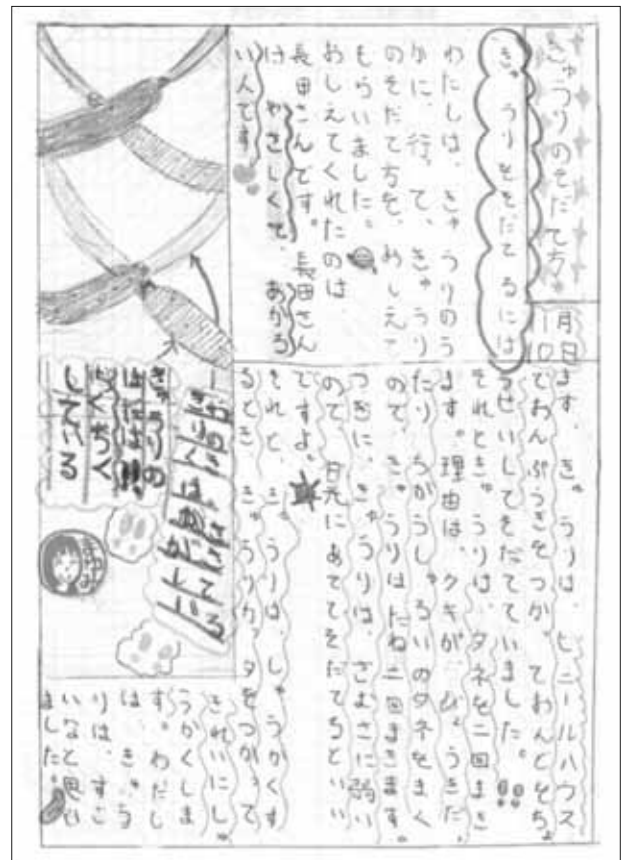 きゅうりのそだて方。
1月
10日
きゅうりをそだてるには
わたしは、きゅうりのう
かに、行って、きゅうり
のそだて方を、おしえて
もらいました。
おしえてくれたのは、
長田さんです。長田さん
は、やさしくて、あかる
い人です。
ます、きゅうりは、ビニールハウス
でわんぷうきをつかってわんどをち
うせいしてそだてていました。
それときゅうりは、タネを二回まき
ます。理由は、クキがびょうきだっ
たり ちがうしゅるいのタネをまく
ので、きゅうりはたね二回まきます。
つぎに、きゅうりは、さむさに弱い
ので、日光にあててそだてるといい
ですよ。
それと、きゅうりは、しゅうかくす
るとき きゅうりカッタをつかって
きれいにしゅ
うかくしま
す。わたし
は、きゅう
りは、すご
いなと思い
ました。
きゅうりの
ちくちく
している